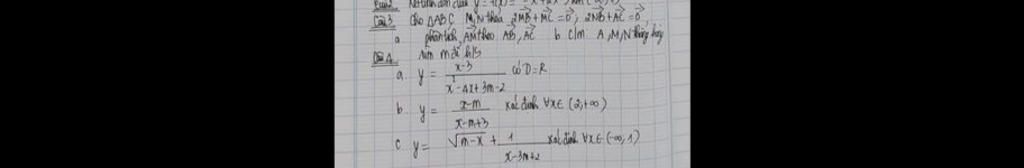 Câu 3 Cho ΔABC M, N thỏa 2MB + MC = 0, 2NB + AC = 0
a phân tích AM theo AB, AC b C/m A, M, N thẳng hàng
Câu 4 tìm m để h/s
a. y = (x-3)/(x² - 4x + 3m - 2) có D = R
b. y = (x-m)/(x-m+3) xác định ∀x ∈ (2; +∞)
c. y = √(m-x) + 1/(x-3m+2) xác định ∀x ∈ (-∞, 1)